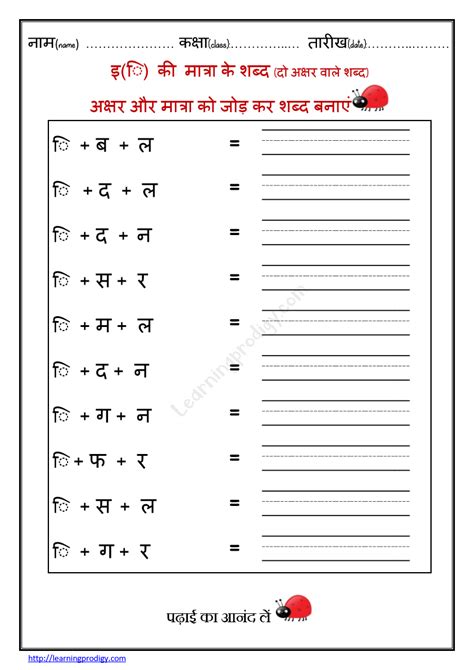 नाम(name) ........................ कक्षा(class)..................... तारीख(date)......................
इ(ि) की मात्रा के शब्द (दो अक्षर वाले शब्द)
अक्षर और मात्रा को जोड़ कर शब्द बनाएं
ि + ब + ल =
ि + द + ल =
ि + द + न =
ि + स + र =
ि + म + ल =
ि + द + न =
ि + ग + न =
ि + फ + र =
ि + स + ल =
ि + ग + र =
Learningprodigy.com
पढ़ाई का आनंद लें
http://learningprodigy.com